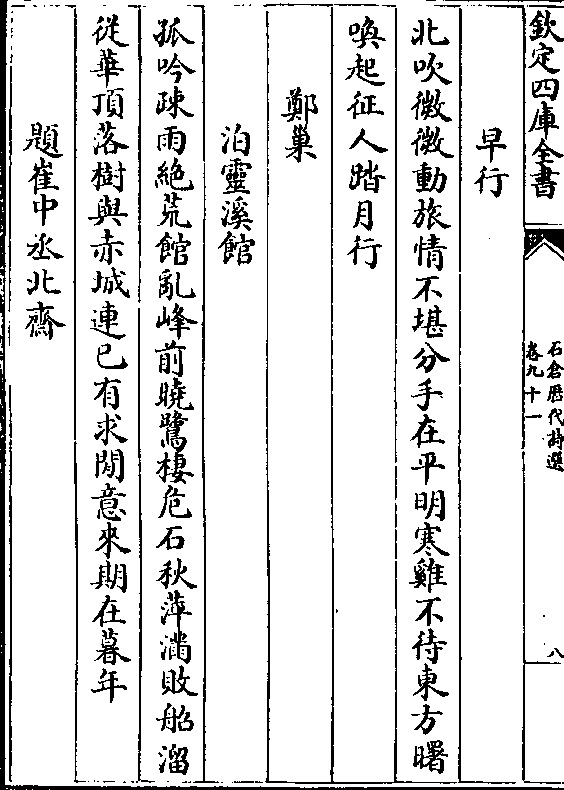 欽定四庫全書
石倉歷代詩選
卷九十一
八
早行
北吹微微動旅情不堪分手在平明寒雞不待東方曙
喚起征人踏月行
鄭巢
泊靈溪館
孤吟疎雨絶荒館亂峰前曉鷺棲危石秋萍滿敗船溜
從華頂落樹與赤城連已有求閒意來期在暮年
題崔中丞北齋